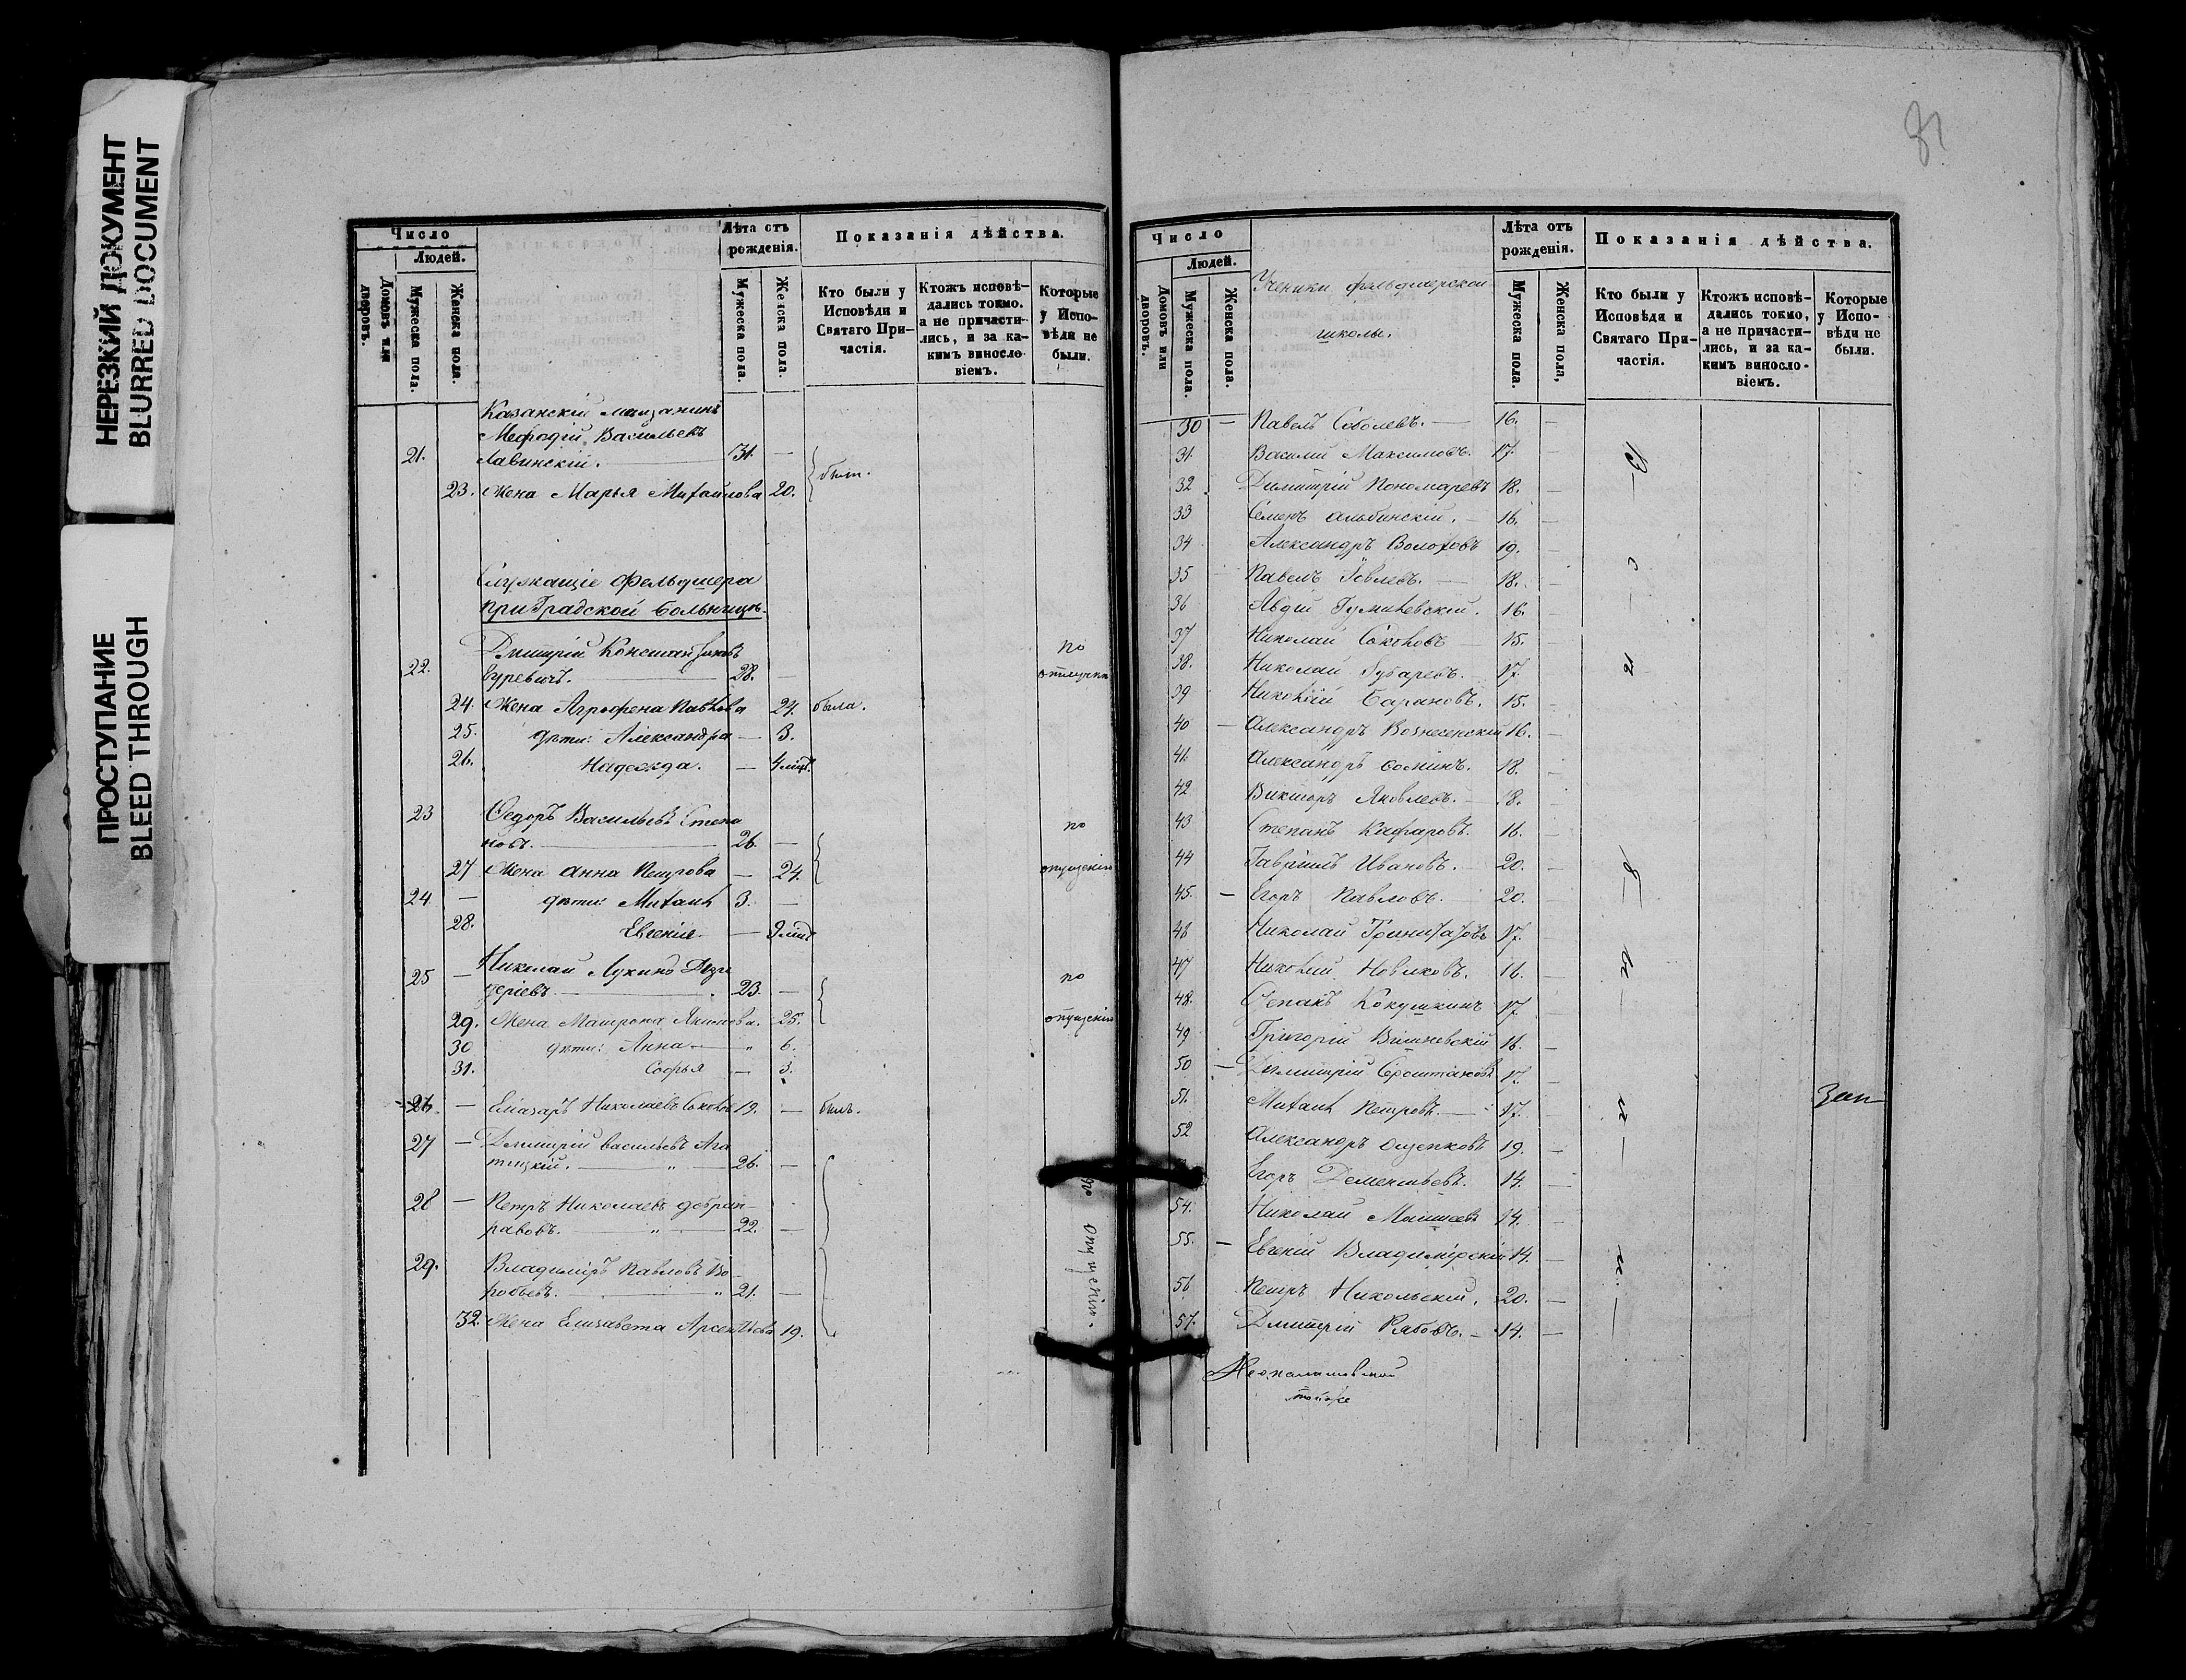 НЕРЕЗКИЙ ДОКУМЕНТ
BLURRED DOCUMENT
ПРОСТУПАНИЕ
BLEED THROUGH
Число
Людей.
Домовъ или дворовъ.
Мужеска пола.
Женска пола.
Лѣта отъ рожденія.
Мужеска пола.
Женска пола.
Показанія дѣйства.
Кто были у Исповѣди и Святаго При-частія.
Ктожъ исповѣ-дались токмо, а не причасти-лись, и за ка-кимъ винословіемъ.
Которые у Испо-вѣди не были.
Казанскій мѣщанинъ
Меѳодій Васильевъ
21. Лавинскій. 31. —
23. Жена Марья Михайлова 20. были.
Служащіе Фельдшера
при Градской больницѣ.
Дмитрій Константиновъ по
22. Гуревичъ. 28. — отлучкѣ
24. Жена Агрофена Павлова 24. была.
25. Дѣти: Александра — 3.
26. Надежда. — 4 мѣс.
23 Ѳедоръ Васильевъ Степа по
новъ. 26. —
27 Жена Анна Петрова — 24. опущенію
24 — дѣти: Михаилъ 3. —
28. Евгенія. — 9 мѣс.
25 — Николай Лукинъ по
23. —
29. Жена Матрона Якимова. 25. опущенію
30 дѣти: Анна — 6.
31. Софья — 3.
26 — Елазаръ Николаевъ 19. — былъ.
27 — Дмитрій Васильевъ
26. —
28 — Петръ Николаевъ Добран-
равовъ. 22. — по опущенію.
29. Владиміръ Павловъ Во-
робьевъ. 21. —
32. Жена Елизавета Арсентьева 19.
81
Число
Людей.
Домовъ или дворовъ.
Мужеска пола.
Женска пола.
Ученики фельдшерской
школы.
Лѣта отъ рожденія.
Мужеска пола.
Женска пола,
Показанія дѣйства.
Кто были у Исповѣди и Святаго При-частія.
Ктожъ исповѣ-дались токмо, а не причасти-лись, и за ка-кимъ винословіемъ.
Которые у Испо-вѣди не были.
30 — Павелъ Соболевъ. — 16. —
31. Василій Максимовъ. 17. —
32. Димитрій Пономаревъ 18. —
33 Семенъ Альбинскій. — 16. —
34 Александръ Волоховъ 19. —
35 Павелъ Іовлевъ. — 18. —
36 Авдій 16. —
37 Николай 15. —
38. Николай Зубаревъ. 17.
39 Николай Барановъ. 15. —
40 — Александръ Вознесенскій 16. —
41. Александръ Соминъ. 18. —
42 Викторъ Яковлевъ. 18. —
43 Степанъ Кафаровъ. 16. —
44 Гавріилъ Ивановъ. 20. —
45. — Егоръ Павловъ. 20.
46 Николай 17. —
47 Николай Новиковъ. 16. —
48. Степанъ Кокушкинъ 17.
49 Григорій 16. —
50 — Димитрій 17. —
51. Михаилъ Петровъ. 17. зап
52 Александръ Ощепковъ 19. —
Егоръ Дементьевъ. 14. —
54. Николай 14. —
55. — Евгеній Владимірскій 14. —
56 Петръ Никольскій. 20. —
57. Дмитрій Рябовъ. — 14. —